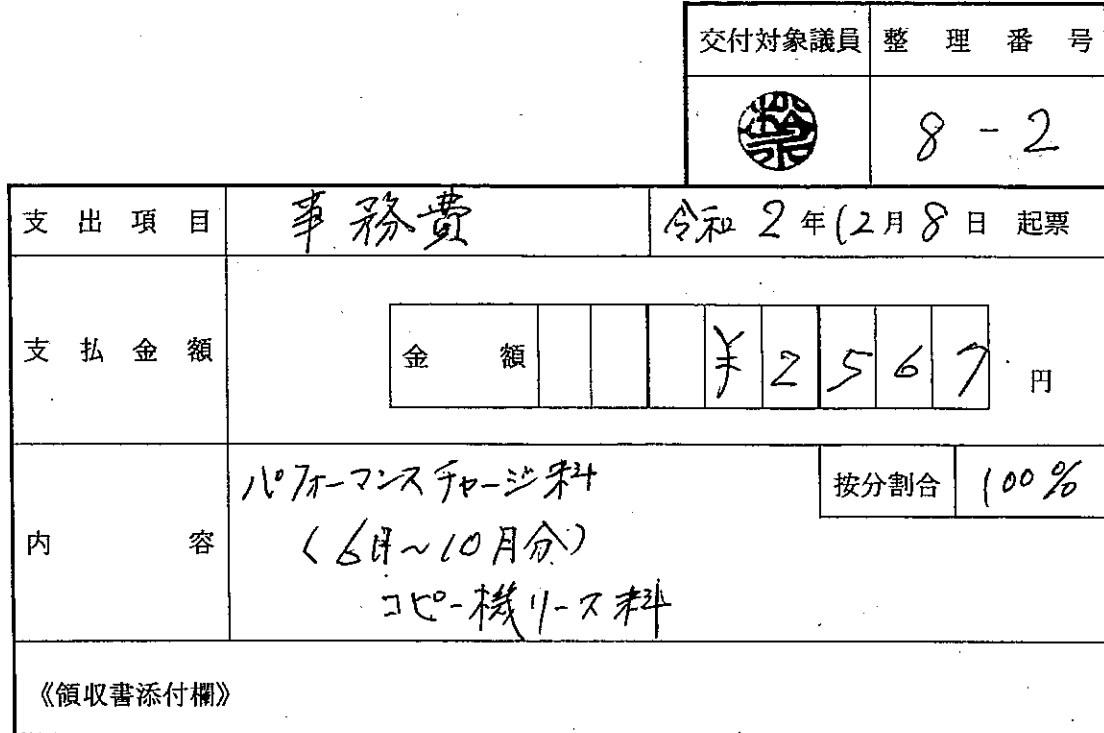 交付対象議員 整理番号
8-2
支出項目 事務費 令和2年12月8日 起票
支払金額 金額 ¥2567 円
内容 パフォーマンスチャージ料 按分割合 100%
(6月~10月分)
コピー機リース料
《領収書添付欄》